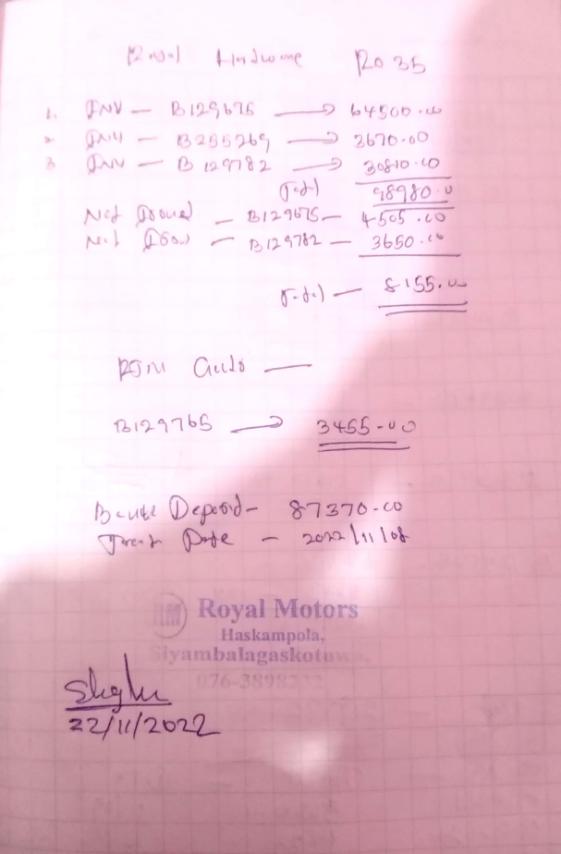 Royal Hardware R035
1. INV — B129675 → 64500.00
2. INV — B255269 → 3670.00
3 INV — B129782 → 30810.00
Total 98980.0
Net — B129675 — 4505.00
Net — B129782 — 3650.00
Total — 8155.00
RSM Auto —
B129765 → 3455-00
Deposit - 87370-00
Date - 2022/11/08
Royal Motors
Haskampola,
Siyambalagaskotuwa.
076-3898
22/11/2022